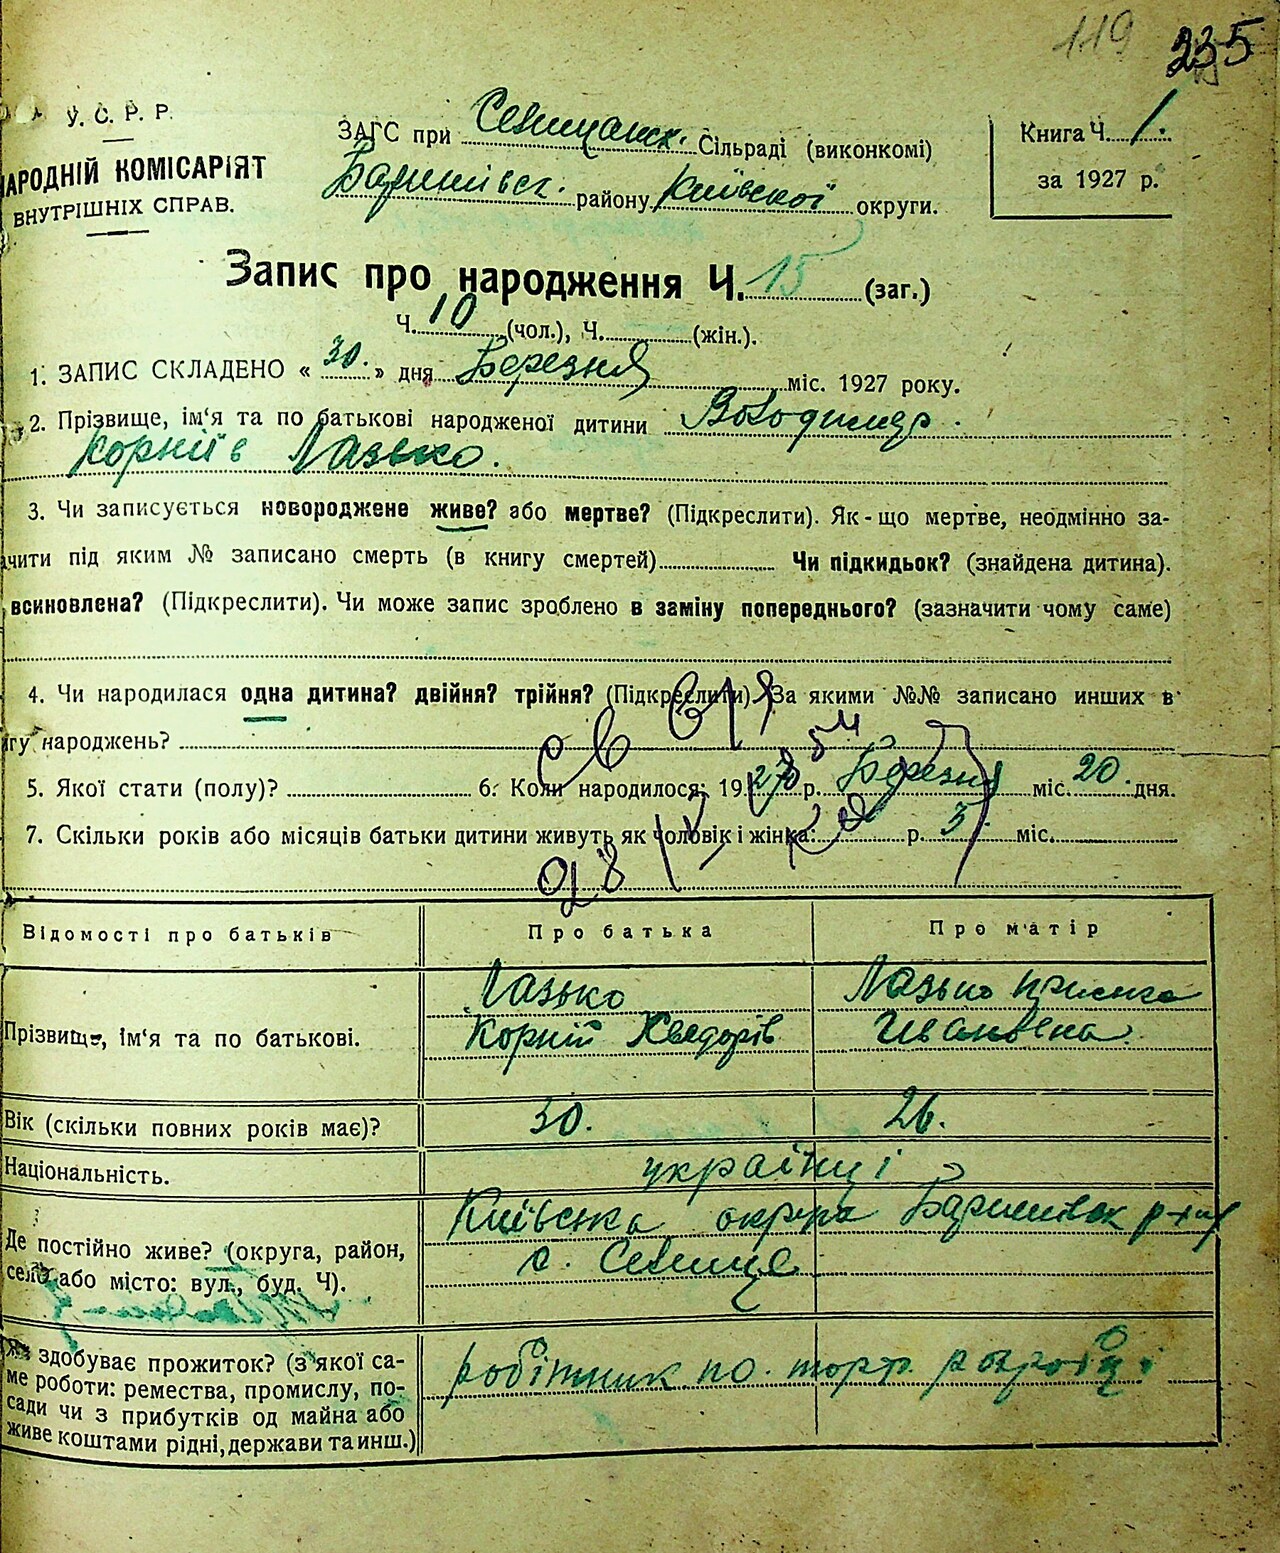 119 235
У. С. Р. Р.
НАРОДНІЙ КОМІСАРІЯТ
ВНУТРІШНІХ СПРАВ.
ЗАГС при Селищанск. Сільраді (виконкомі)
Баришівск. району Київської округи.
Книга Ч. 1.
за 1927 р.
Запис про народження Ч. 15 (заг.)
Ч. 10 (чол.), Ч. (жін.).
1. ЗАПИС СКЛАДЕНО « 30. » дня Березня міс. 1927 року.
2. Прізвище, ім‘я та по батькові народженої дитини Володимир.
Корніїв Лазько.
3. Чи записується новороджене живе? або мертве? (Підкреслити). Як-що мертве, неодмінно за-
чити під яким № записано смерть (в книгу смертей) Чи підкидьок? (знайдена дитина).
всиновлена? (Підкреслити). Чи може запис зроблено в заміну попереднього? (зазначити чому саме)
4. Чи народилася одна дитина? двійня? трійня? (Підкреслити). За якими №№ записано инших в
гу народжень?
5. Якої стати (полу)? 6. Коли народилося: 1927 р. Березня міс. 20. дня.
7. Скільки років або місяців батьки дитини живуть як чоловік і жінка: р. 3 міс.
Відомості про батьків Про батька Про матір
Прізвище, ім‘я та по батькові.
Лазько
Корній Хведорів
Лазько Приська
Івановна.
Вік (скільки повних років має)? 30. 26.
Національність. українці
Де постійно живе? (округа, район,
село або місто: вул., буд. Ч).
Київська округа Баришівск р-ну
с. Селище
Як здобуває прожиток? (з якої са-
ме роботи: ремества, промислу, по-
сади чи з прибутків од майна або
живе коштами рідні, держави та инш.)
робітник по. торф. розробці